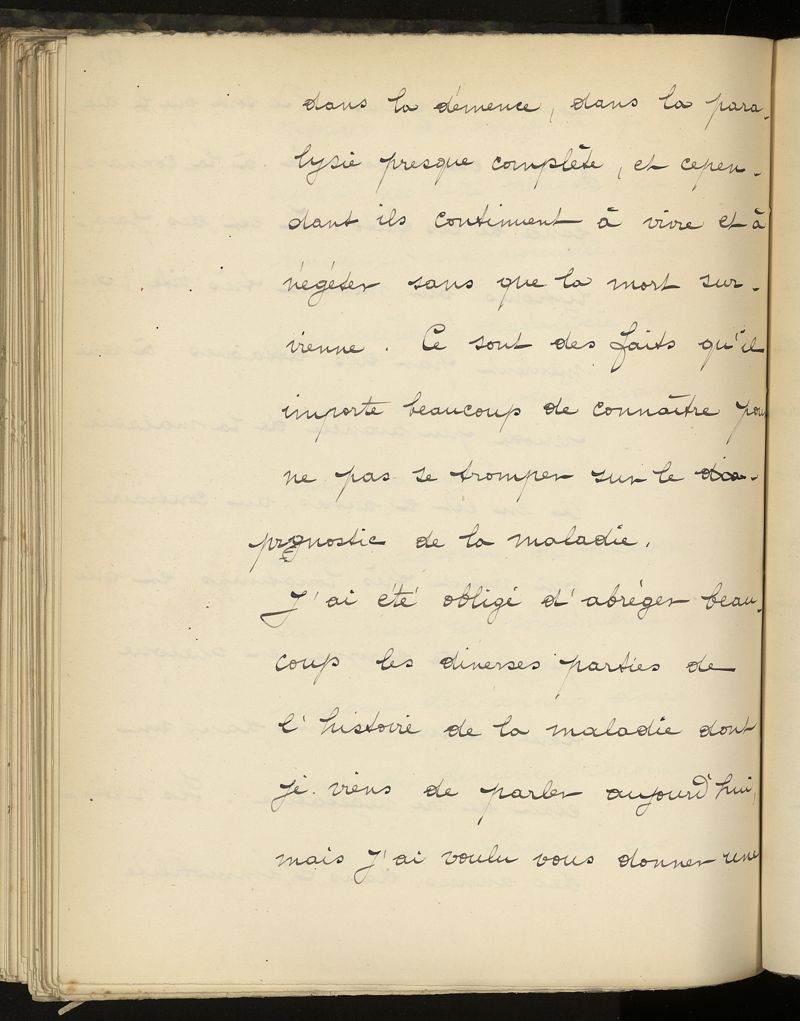 dans la démence, dans la para-
lysie presque complète, et cepen-
dant ils continuent à vivre et à
végéter sans que la mort sur-
vienne. Ce sont des faits qu'il
importe beaucoup de connaître pour
ne pas se tromper sur le dia-
prognostic de la maladie.
J'ai été obligé d'abréger beau-
coup les diverses parties de
l'histoire de la maladie dont
je viens de parler aujourd'hui,
mais j'ai voulu vous donner une